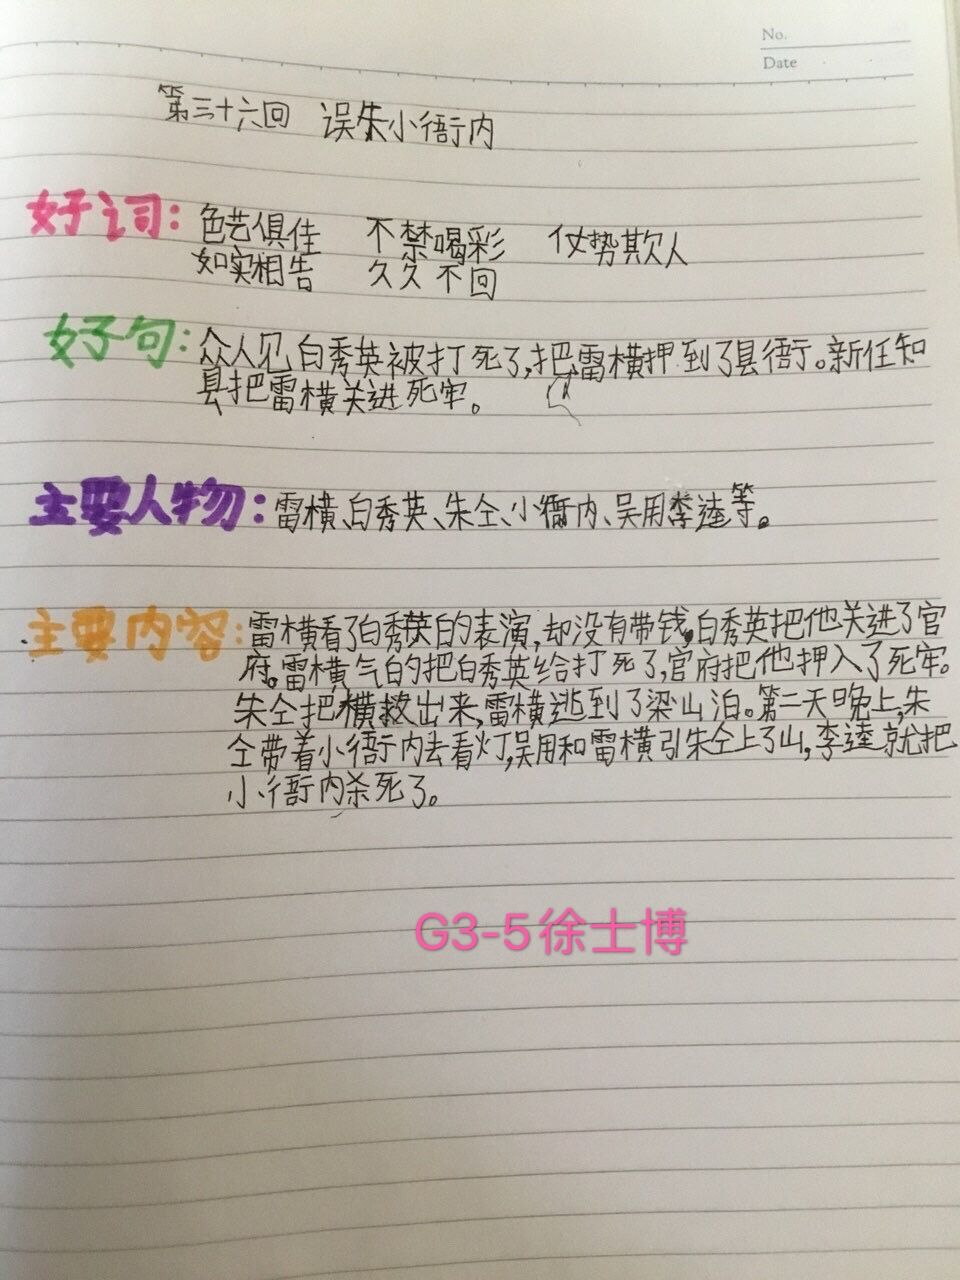 No.
Date
第三十六回 误朱小衙内
好词: 色艺俱佳 不禁喝彩 仗势欺人
如实相告 久久不回
好句: 众人见白秀英被打死了,把雷横押到了县衙。新任知
县把雷横关进死牢。
主要人物: 雷横、白秀英、朱仝、小衙内、吴用李逵等。
主要内容: 雷横看了白秀英的表演,却没有带钱,白秀英把他关进了官
府。雷横气的把白秀英给打死了,官府把他押入了死牢。
朱仝把横救出来,雷横逃到了梁山泊。第二天晚上,朱
仝带着小衙内去看灯,吴用和雷横引朱仝上了山,李逵就把
小衙内杀死了。
G3-5徐士博